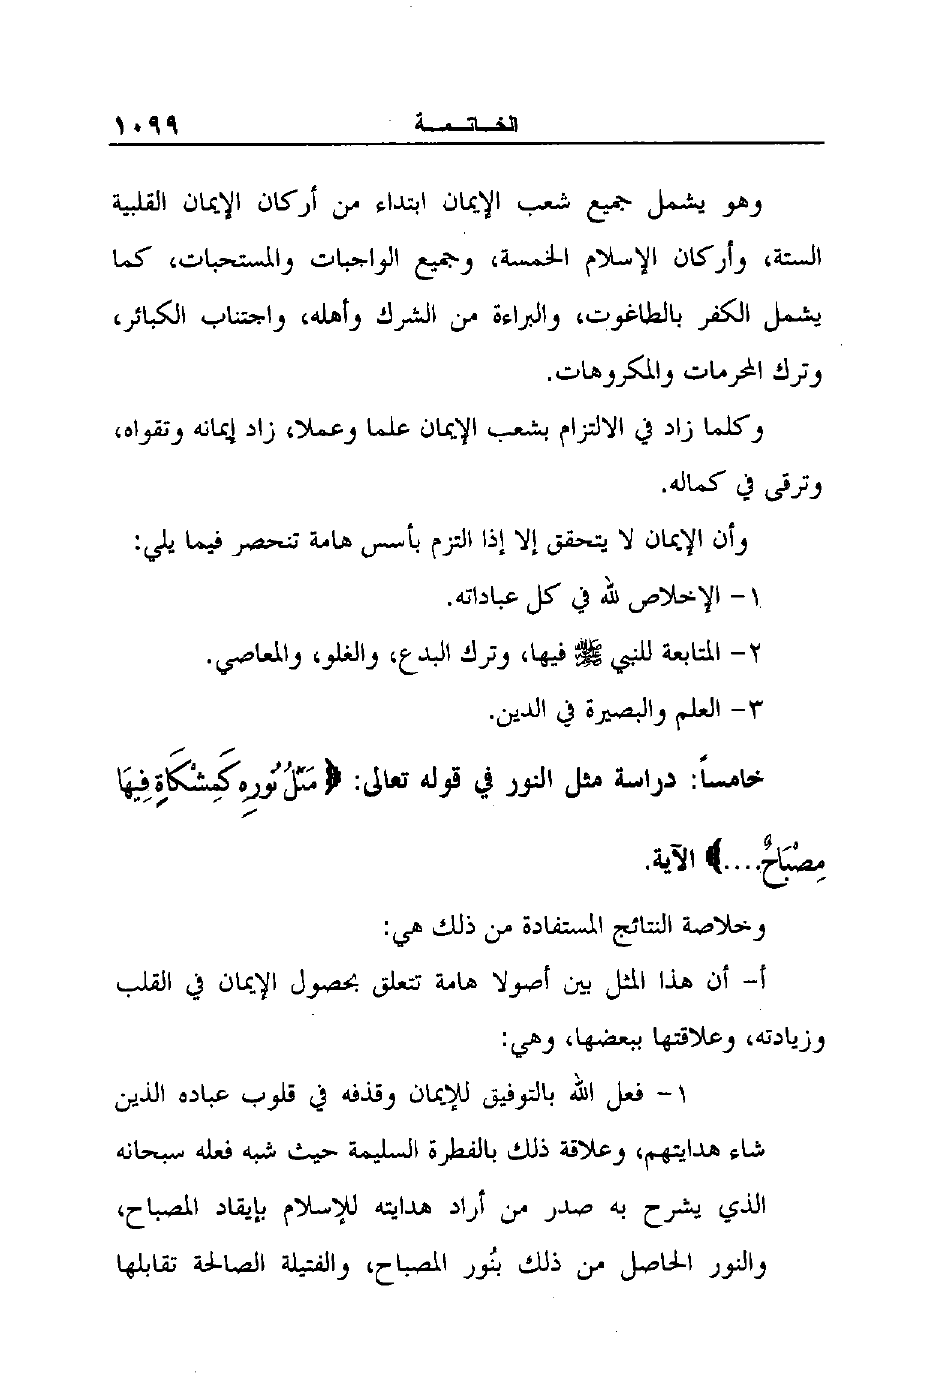 الخاتمة ١٠٩٩
وهو يشمل جميع شعب الإيمان ابتداء من أركان الإيمان القلبية
الستة، وأركان الإسلام الخمسة، وجميع الواجبات والمستحبات، كما
يشمل الكفر بالطاغوت، والبراءة من الشرك وأهله، واجتناب الكبائر،
وترك المحرمات والمكروهات.
وكلما زاد في الالتزام بشعب الإيمان علما وعملا، زاد إيمانه وتقواه،
وترقى في كماله.
وأن الإيمان لا يتحقق إلا إذا التزم بأسس هامة تنحصر فيما يلي:
١- الإخلاص لله في كل عباداته.
٢- المتابعة للنبي ﷺ فيها، وترك البدع، والغلو، والمعاصي.
٣- العلم والبصيرة في الدين.
خامساً: دراسة مثل النور في قوله تعالى: ﴿ مَثَلُ نُورِهِ كَمِشْكَاةٍ فِيهَا
مِصْبَاحٌ....﴾ الآية.
وخلاصة النتائج المستفادة من ذلك هي:
أ- أن هذا المثل بين أصولا هامة تتعلق بحصول الإيمان في القلب
وزيادته، وعلاقتها ببعضها، وهي:
١- فعل الله بالتوفيق للإيمان وقذفه في قلوب عباده الذين
شاء هدايتهم، وعلاقة ذلك بالفطرة السليمة حيث شبه فعله سبحانه
الذي يشرح به صدر من أراد هدايته للإسلام بإيقاد المصباح،
والنور الحاصل من ذلك بنُور المصباح، والفتيلة الصالحة تقابلها